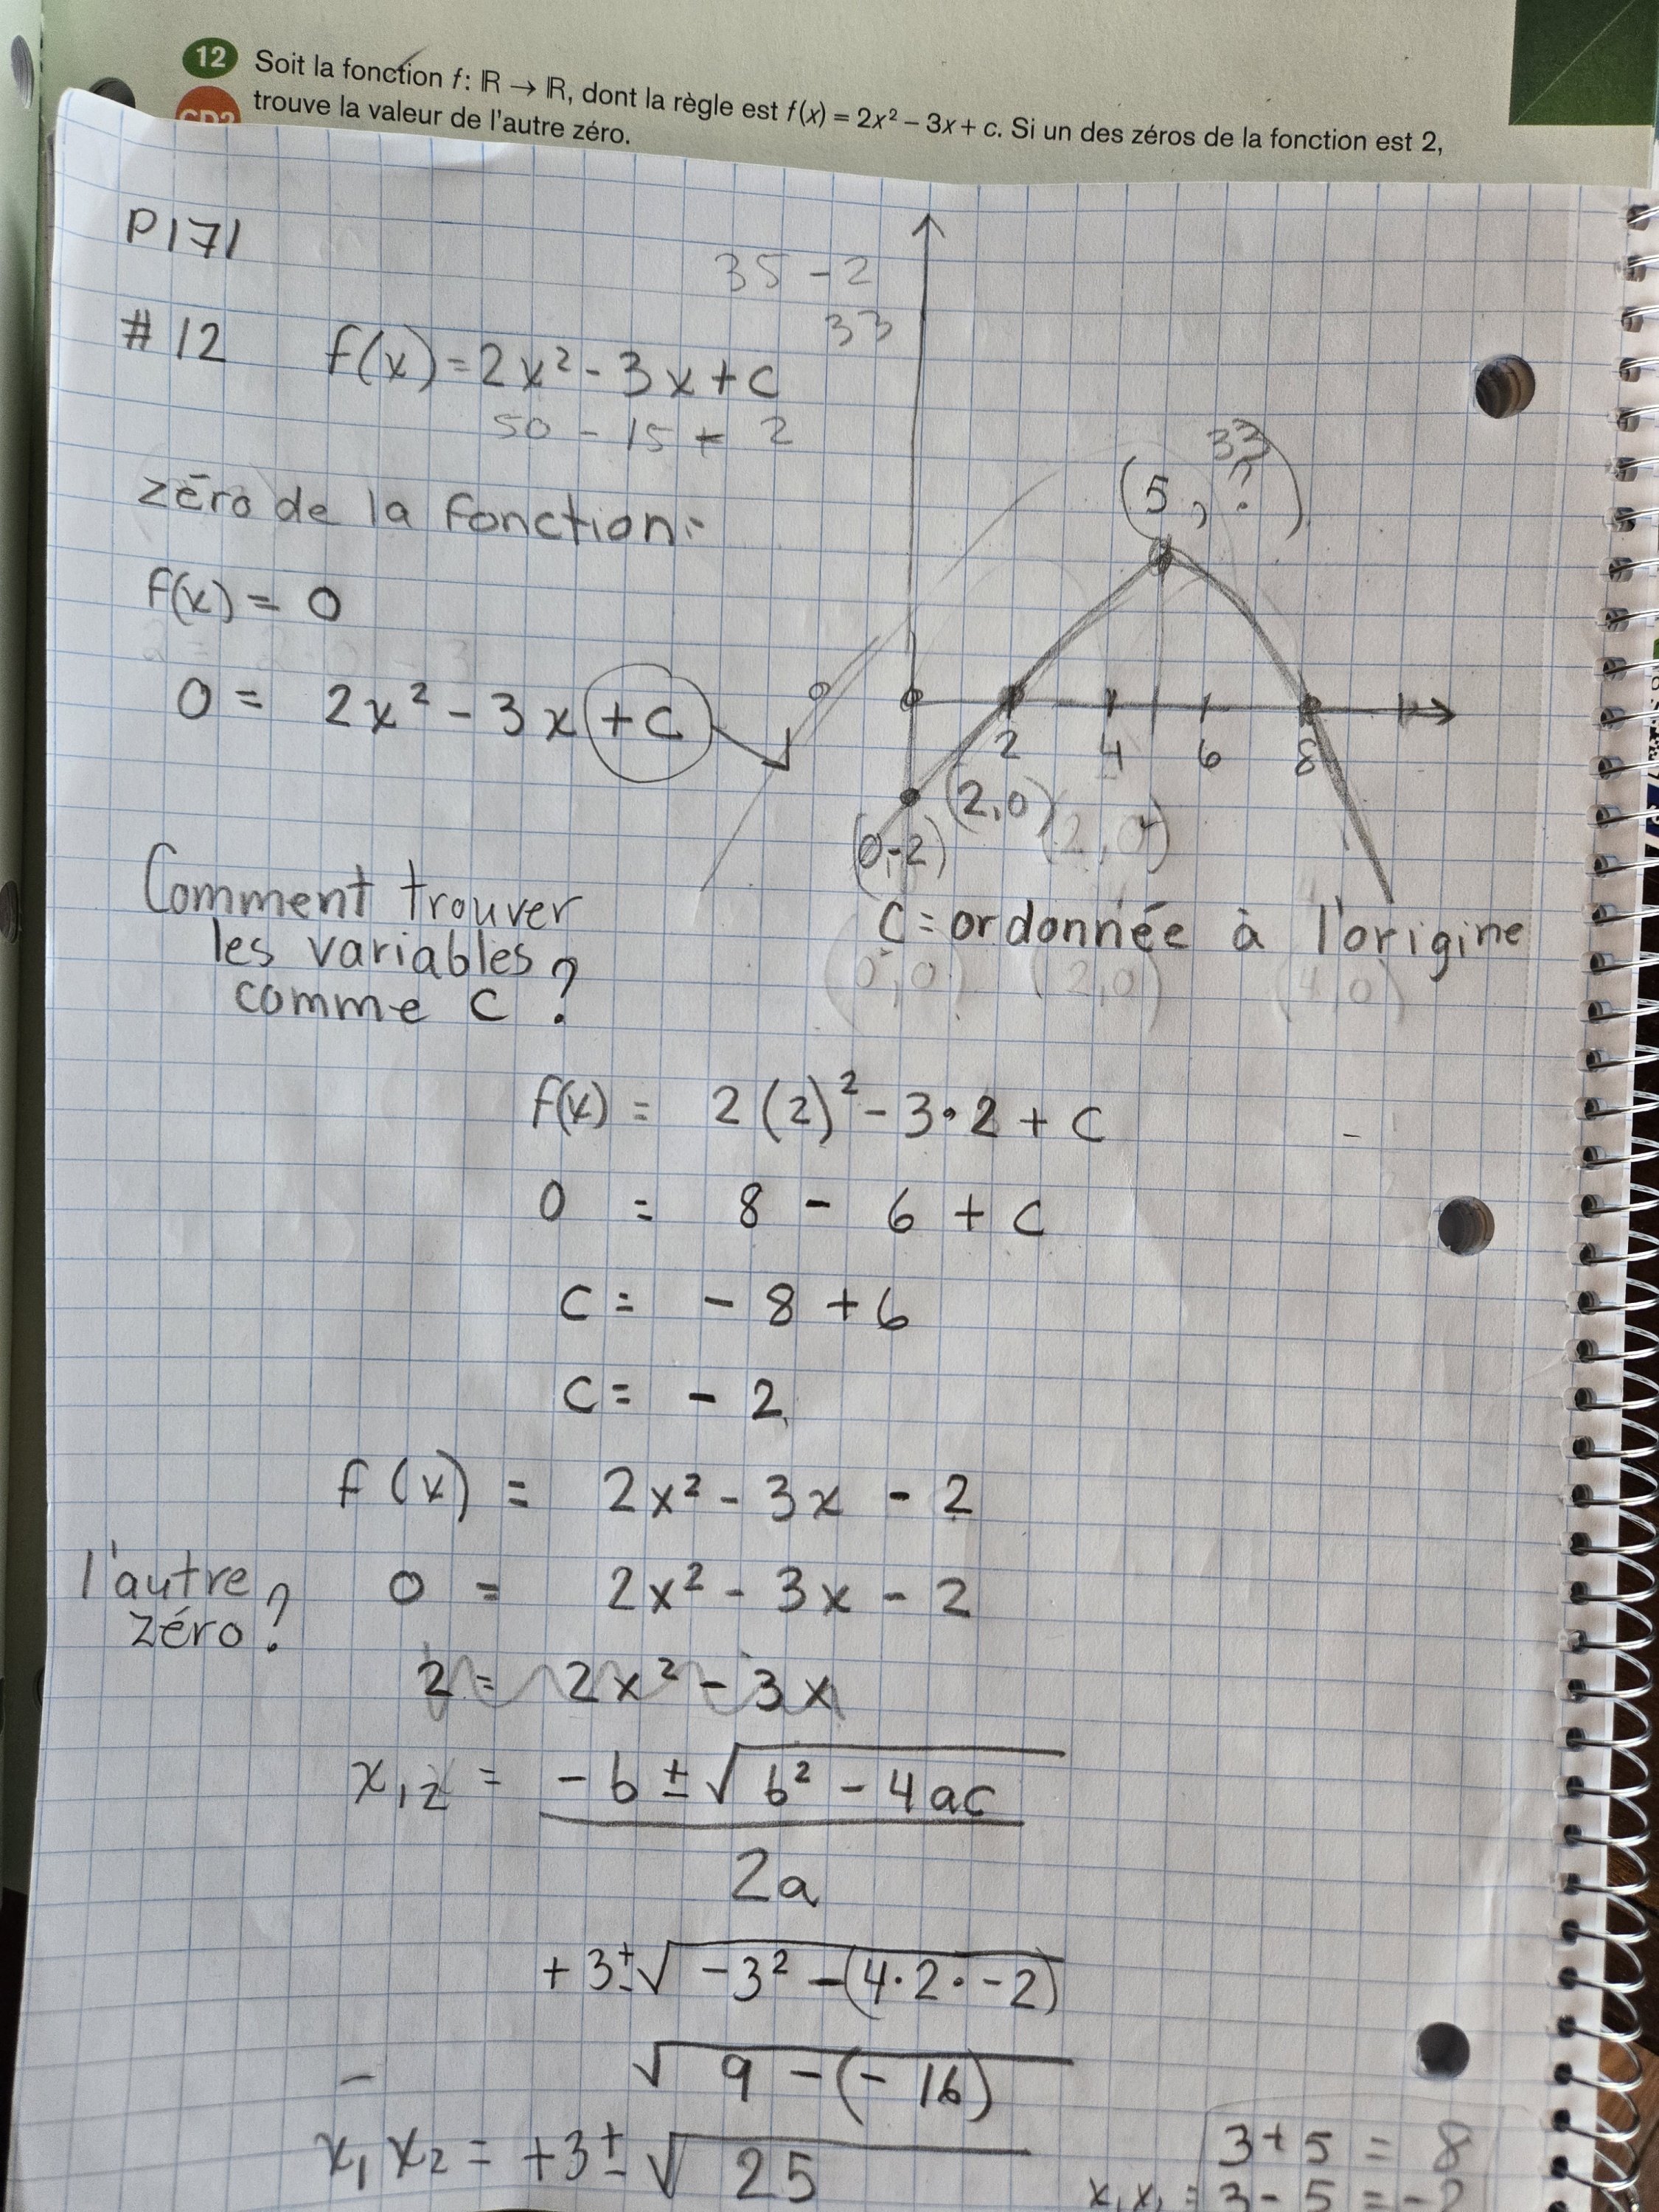 12 Soit la fonction f : ℝ → ℝ, dont la règle est f(x) = 2x² – 3x + c. Si un des zéros de la fonction est 2,
CD2 trouve la valeur de l'autre zéro.
P171
35 - 2
33
#12 f(x) = 2x² - 3x + c
50 - 15 + 2
zéro de la fonction:
33
(5, ?)
f(x) = 0
0 = 2x² - 3x + c
2 4 6 8
(2,0) (2,0)
(0,-2)
Comment trouver
les variables
comme c ?
c = ordonnée à l'origine
(0,0) (2,0) (4,0)
f(x) = 2(2)² - 3•2 + c
0 = 8 - 6 + c
c = - 8 + 6
c = - 2
f(x) = 2x² - 3x - 2
l'autre zéro?
0 = 2x² - 3x - 2
2 = 2x² - 3x
x1,2 = -b ± √b² - 4ac
2a
+3 ± √-3² - (4•2•-2)
√9 - (-16)
x₁ x₂ = +3 ± √25
3 + 5 = 8
x₁ x₂ = 3 - 5 = -2